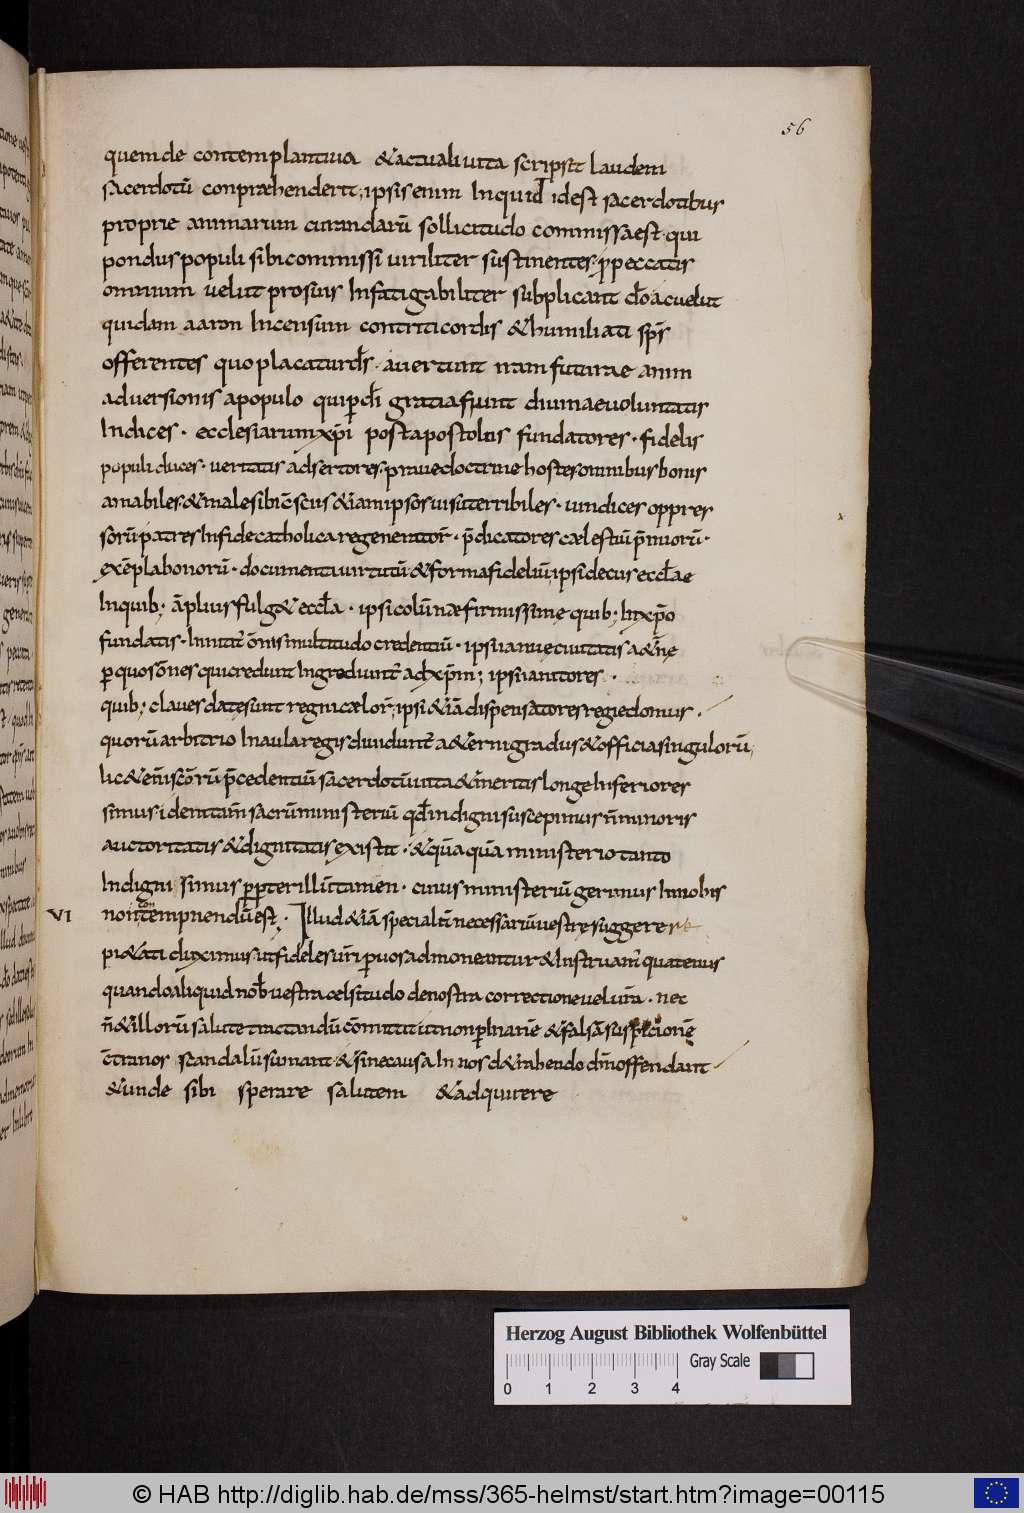 56
quem de contemplantiua & actuali uita scripsit laudem
sacerdotū conpraehenderit, ipsis enim Inquid idest sacerdotibus
proprie animarum curandarū sollicitudo commissa est· qui
pondus populi sibi commissi uiriliter sustinentes· ꝓ peccatis
omnium uelut pro suis Infatigabiliter subplicant dō ac uelut
quidam aaron Incensum contriti cordis & humiliati sp̄s
offerentes quo placatur ds̄· auertunt iram futurae anim
aduersionis a populo qui ꝑ dī gratia fiunt diuinae uoluntatis
Indices· ecclesiarum xp̄i post apostolus fundatores· fidelis
populi duces· ueritatis adsertores· prauę doctrine hostes omnibus bonis
amabiles· & male sibi c̄sciis &iam ipso uisu terribiles· uindices oppres
sorū patres In fide catholica regeneratoꝝ· p̄dicatores cælestiū p̄miorū·
exēpla bonorū· documenta uirtutū & forma fideliū, ipsi decus eccłae
In quib; āplius fulg& eccła· ipsi colūnæ firmissimę quib; In xp̄o
fundatis· Innitit̄ ōnis multitudo credentiū· ipsi ianuę ciuitatis a&̄nę
ꝑ quos ōnes qui credunt Ingrediunt̄ ad xp̄m; ipsi ianitores·
quib; claues datę sunt regni cæloꝝ, ipsi &iā dispensatores regię domus·
quorū arbitrio In aula regis diuidunt̄ a&erni gradus & officia singulorū,
lic& en̄ iscōrū p̄cedentiū sacerdotū uita & meritis longe Inferiores
simus· identitam̄ sacrū ministeriū qđ indigni suscepimus n̄ minoris
auctoritatis & dignitatis existit· & quāquā ministerio tanto
Indigni simus ꝓpter illū tamen· cuius ministeriū gerimus In nobis
VI non contempnendū est· Illud &iā specialit̄ necessariū uestrę suggerere
pi&ati duximus ut fideles ur̄i ꝑ uos admoneantur & Instruant̄ quatenus
quando aliquid nob̄ uestra celsitudo de nostra correctione uel ur̄a· nec
n̄ & illorū salute tractandū cōmittit ut non ꝑ Inanē & falsā suspicionē
c̄tra nos scandalū sumant & sine causa In nos d&rahendo dm̄ offendant
& unde sibi sperare salutem & adquirere
Herzog August Bibliothek Wolfenbüttel
Gray Scale
0 1 2 3 4
© HAB http://diglib.hab.de/mss/365-helmst/start.htm?image=00115